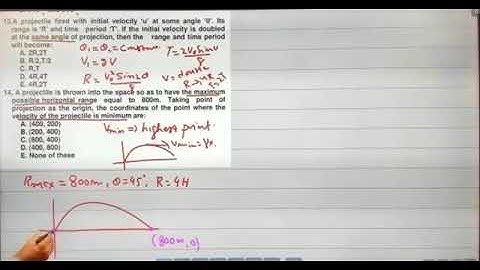 13.A projectile fired with initial velocity 'u' at some angle 'θ'. Its
range is 'R' and time period 'T'. If the initial velocity is doubled
at the same angle of projection, then the range and time period
will become:
A. 2R,2T
B. R/2,T/2
C. R,T
D. 4R,4T
E. 4R,2T
θ₁=θ₂=constant
V₁=2V
R = V₀²Sin2θ/g
T=2V₀Sinθ/g
V=double
14. A projectile is thrown into the space so as to have the maximum
possible horizontal range equal to 800m. Taking point of
projection as the origin, the coordinates of the point where the
velocity of the projectile is minimum are:
A. (400, 200)
B. (200, 400)
C. (800, 400)
D. (400, 800)
E. None of these
Vmin => highest point.
Vmin=Vx
Rmax = 800m, θ=45°, R=4H
(800m,0)